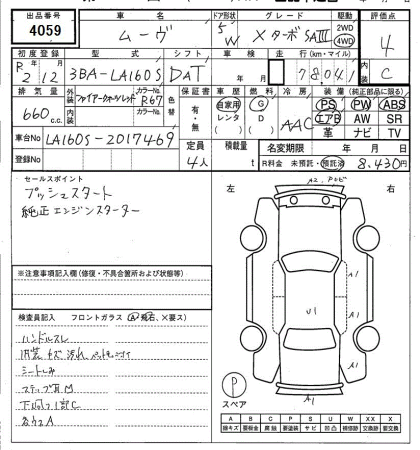 出品番号 車名 ドア形状 グレード 駆動 評価点
4059 ムーヴ 5 W X ターボ SAIII 2WD 4WD 4
初度登録 型式 シフト 車検 走行(km・マイル) 内装
R2 12 3BA-LA160S DAT 年 月 7804 C
排気量 外装 ファイアークォーツレッド カラーNo. R67 色替 保証書 車歴 燃料 冷房 装備 (純正部品に限る)
660 c.c. 内装 カラーNo. 有・無 自家用 レンタ G D AAC PS PW ABS
エアB AW SR
革 ナビ TV
車台No LA160S-2017469 定員 4人 積載量 t 名変期限 年 月 日
登録No R料金 未預託・預託済 8,430円
セールスポイント
プッシュスタート
純正エンジンスターター
左 右
A2
U1
A1
A1
A1
※注意事項記入欄(修復・不具合箇所および状態等)
検査員記入 フロントガラス (A飛石、X要ス)
ハンドルスレ
シートしみ
P
スペア
A B C P S U W X XX
線キズ 要板金 腐蝕 要塗装 サビ 凹凸 補修跡 要交換 交換跡